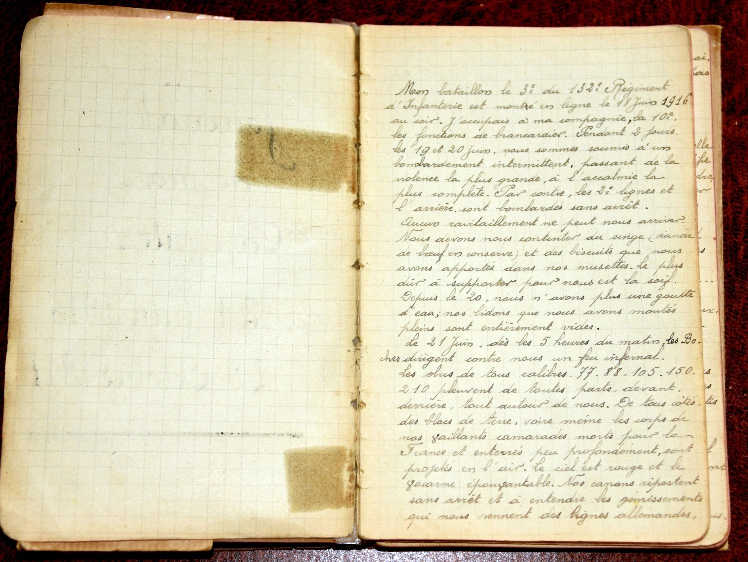 Mon bataillon le 3e du 132e Régiment
d'Infanterie est monté en ligne le 18 Juin 1916
au soir. J'occupais à ma compagnie, la 10e
les fonctions de brancardier. Pendant 2 jours
les 19 et 20 Juin, nous sommes soumis à un
bombardement intermittent, passant de la
violence la plus grande, à l'accalmie la
plus complète. Par contre, les 2e lignes et
l'arrière sont bombardés sans arrêt.
Aucun ravitaillement ne peut nous arriver.
Nous devons nous contenter du singe (viande
de bœuf en conserve) et des biscuits que nous
avons apportés dans nos musettes. Le plus
dur à supporter pour nous est la soif.
Depuis le 20, nous n'avons plus une goutte
d'eau; nos bidons que nous avons montés
pleins sont entièrement vides.
Le 21 Juin, dès les 5 heures du matin, les Bo-
ches dirigent contre nous un feu infernal.
Les obus de tous calibres 77-88-105-150-
210 pleuvent de toutes parts, devant,
derrière, tout autour de nous. De tous côtés
des blocs de terre, voire même les corps de
nos vaillants camarades morts pour la
France et enterrés peu profondément, sont
projetés en l'air. Le ciel est rouge et le
vacarme épouvantable. Nos canons ripostent
sans arrêt et à entendre les gémissements
qui nous viennent des lignes allemandes,